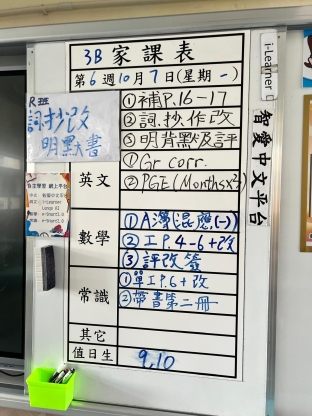 3B 家課表
第6週10月7日(星期一)
R班
詞.抄改
明默書
①補P.16-17
②詞.抄.作改
③明背默及評
英文
①Gr corr.
②PGE(Monthsx2)
數學
②工P.4-6+改
③評改簽
常識
①單工P.6+改
②帶書第二冊
其它
值日生
9,10
i-Learner
智愛中文平台
自主學習 網上平台